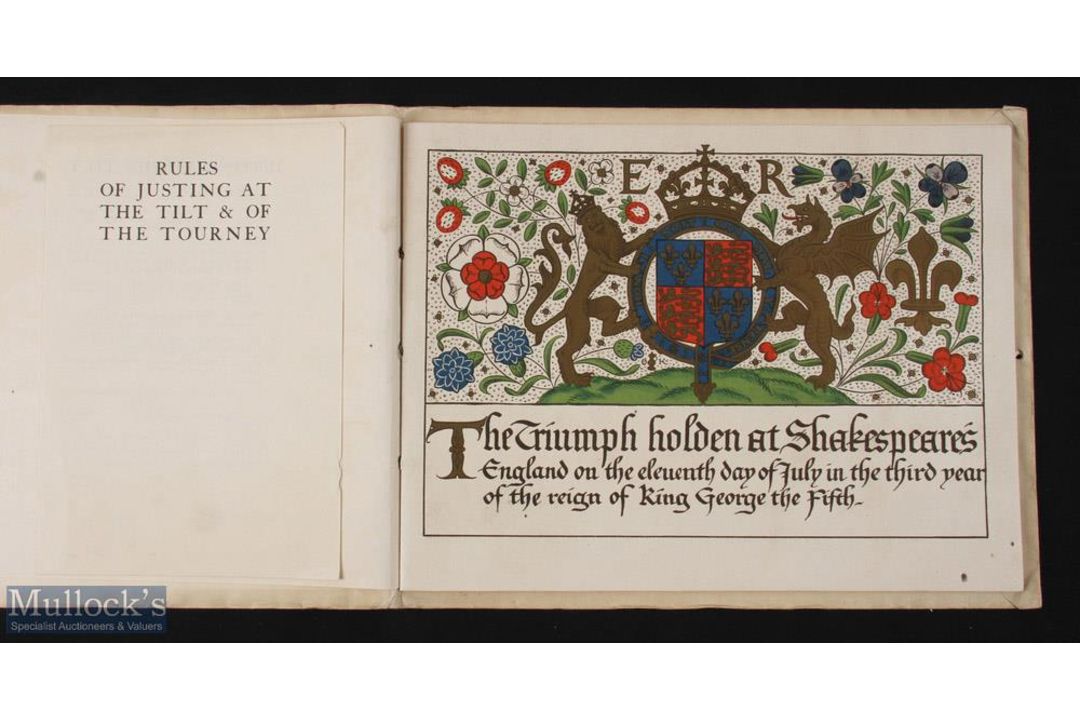 RULES
OF JUSTING AT
THE TILT & OF
THE TOURNEY
E R
The Triumph holden at Shakespeare's
England on the eleventh day of July in the third year
of the reign of King George the Fifth–
Mullock's
Specialist Auctioneers & Valuers